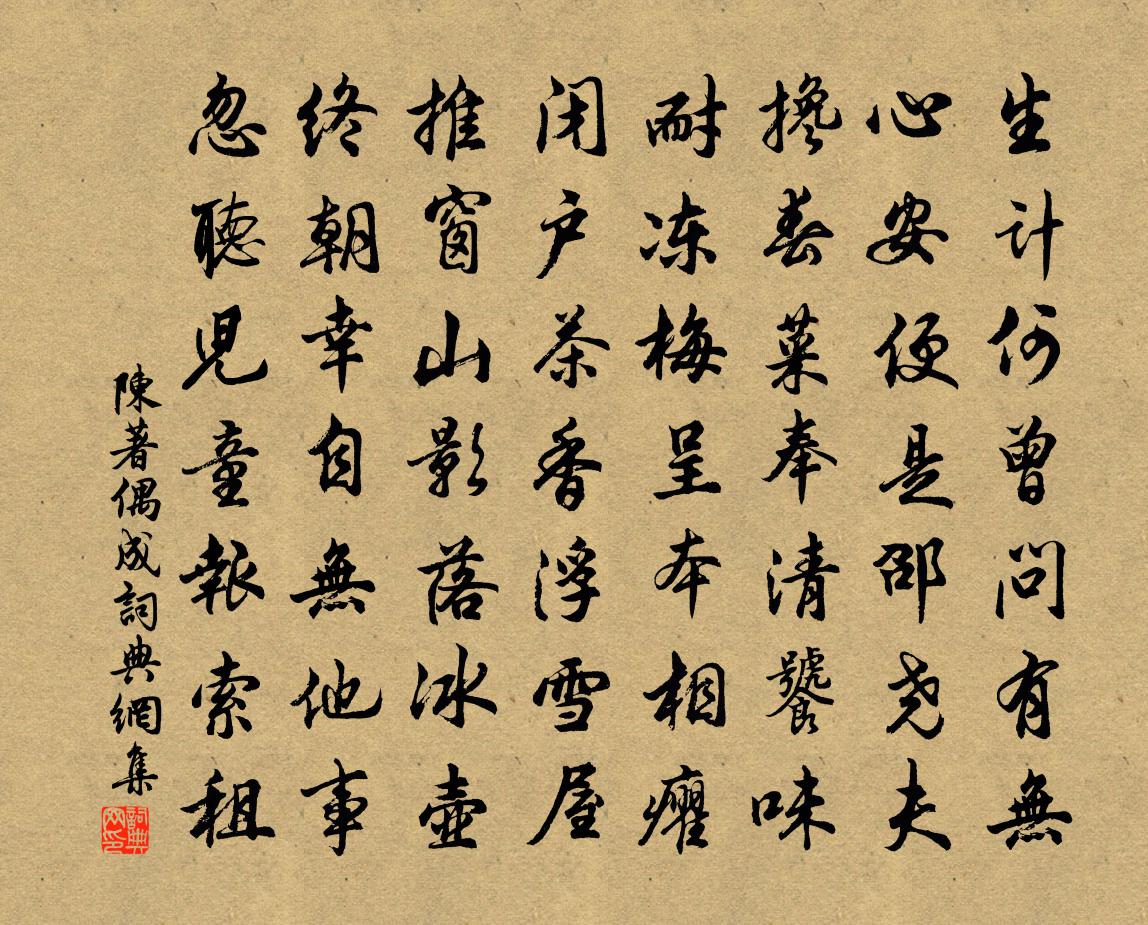 生计何曾问有無
心安便是邵尧夫
搀春菜奉清饕味
耐冻梅呈本相癯
闭户茶香浮雪屋
推窗山影落冰壶
终朝幸自無他事
忽聴児童報索租
陳著偶成詞典網集
詞典网印